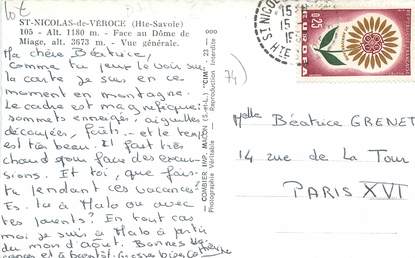 10€
ST-NICOLAS-de-VÉROCE (Hte-Savoie)
105 - Alt. 1180 m. - Face au Dôme de
Miage, alt. 3673 m. - Vue générale.
Ma chère Béatrice,
Comme tu peux le voir sur
la carte je suis en ce
moment en montagne.
Le cadre est magnifique:
sommets enneigés, aiguilles
découpées, forêts... et le temps
est très beau. Il fait très
chaud pour faire des excur-
sions. Et toi, que fais-
tu pendant ces vacances?
Es-tu à Malo ou avec
tes parents? En tout cas
moi je suis à Malo à partir
du mois d'août. Bonnes va-
cances et à bientôt. Grosses bises
COMBIER IMP. MACON (S.-et-L.) "CIM" 23
Photographie Véritable - Reproduction Interdite
74)
ST NICOLAS
15
15
HTE
0,25
EUROPA
Melle Béatrice GRENET
14 rue de La Tour
PARIS XVI